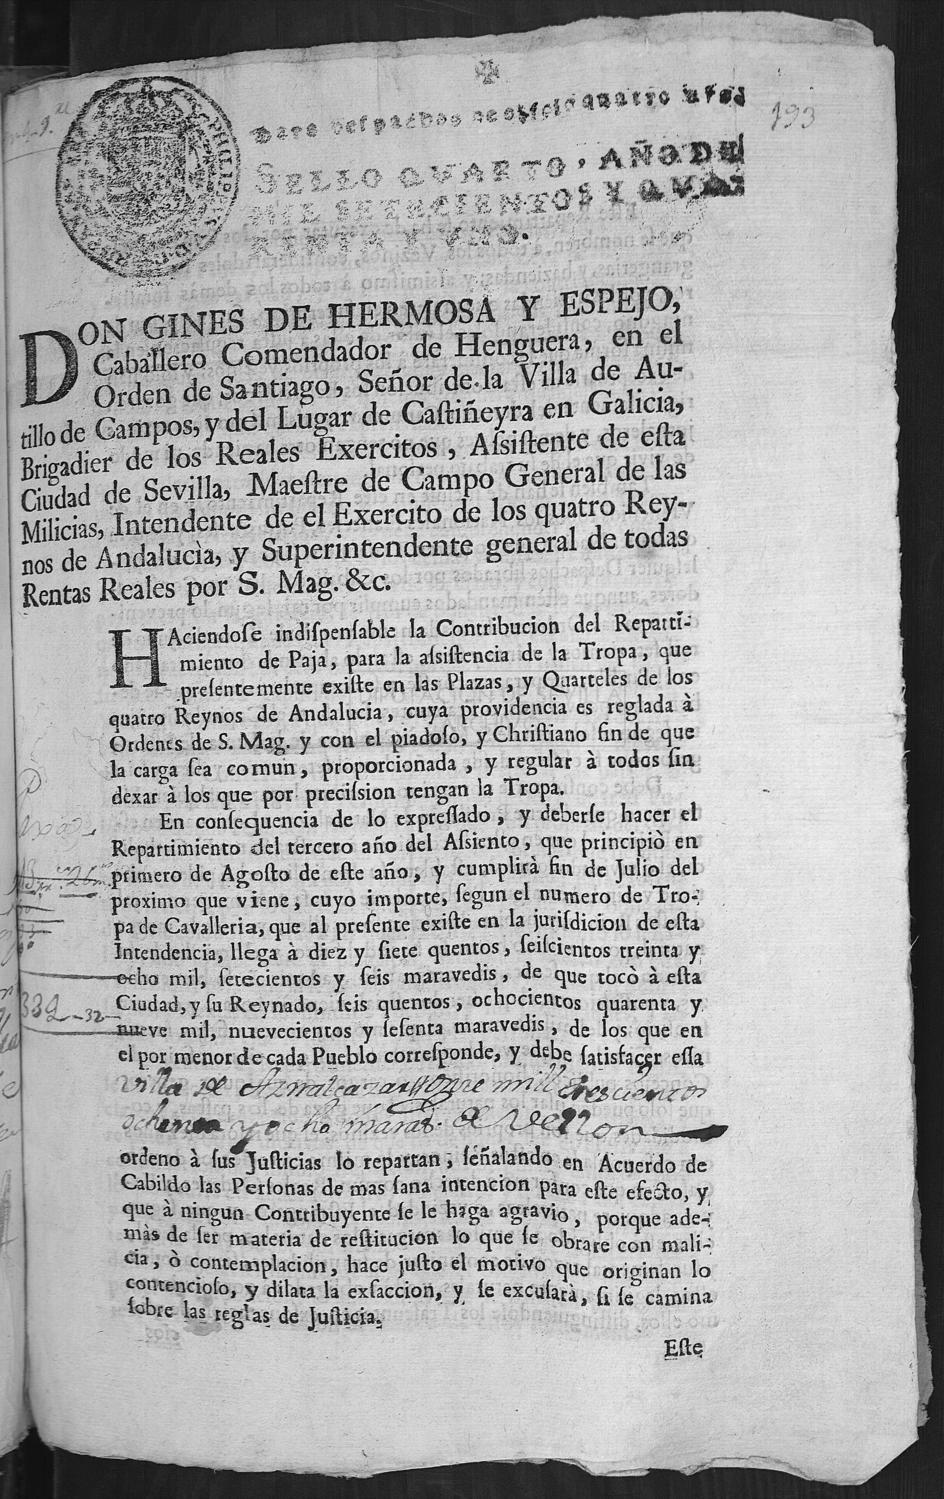 193
Para despachos de oficio quatro mrs
SELLO QUARTO, AÑO DE
MIL SETECIENTOS Y QUA-
RENTA Y UNO.
DON GINES DE HERMOSA Y ESPEJO,
Caballero Comendador de Henguera, en el
Orden de Santiago, Señor de la Villa de Au-
tillo de Campos, y del Lugar de Castiñeyra en Galicia,
Brigadier de los Reales Exercitos, Aſsiſtente de eſta
Ciudad de Sevilla, Maeſtre de Campo General de las
Milicias, Intendente de el Exercito de los quatro Rey-
nos de Andalucìa, y Superintendente general de todas
Rentas Reales por S. Mag. &c.
HAciendoſe indiſpenſable la Contribucion del Reparti-
miento de Paja, para la aſsiſtencia de la Tropa, que
preſentemente exiſte en las Plazas, y Quarteles de los
quatro Reynos de Andalucia, cuya providencia es reglada à
Ordenes de S. Mag. y con el piadoſo, y Chriſtiano fin de que
la carga ſea comun, proporcionada, y regular à todos ſin
dexar à los que por preciſsion tengan la Tropa.
En conſequencia de lo expreſſado, y deberſe hacer el
Repartimiento del tercero año del Aſsiento, que principiò en
primero de Agoſto de eſte año, y cumplirà fin de Julio del
proximo que viene, cuyo importe, ſegun el numero de Tro-
pa de Cavalleria, que al preſente exiſte en la juriſdicion de eſta
Intendencia, llega à diez y ſiete quentos, ſeiſcientos treinta y
ocho mil, ſetecientos y ſeis maravedis, de que tocò à eſta
Ciudad, y ſu Reynado, ſeis quentos, ochocientos quarenta y
nueve mil, nuevecientos y ſeſenta maravedis, de los que en
el por menor de cada Pueblo correſponde, y debe ſatisfacer eſſa
Villa de Aznalcazar onze mill trescientos
ochenta y ocho marads. de Vellon
ordeno à ſus Juſticias lo repartan, ſeñalando en Acuerdo de
Cabildo las Perſonas de mas ſana intencion para eſte efecto, y
que à ningun Contribuyente ſe le haga agravio, porque ade-
màs de ſer materia de reſtitucion lo que ſe obrare con mali-
cia, ò contemplacion, hace juſto el motivo que originan lo
contencioſo, y dilata la exſaccion, y ſe excuſarà, ſi ſe camina
ſobre las reglas de Juſticia.
Eſte